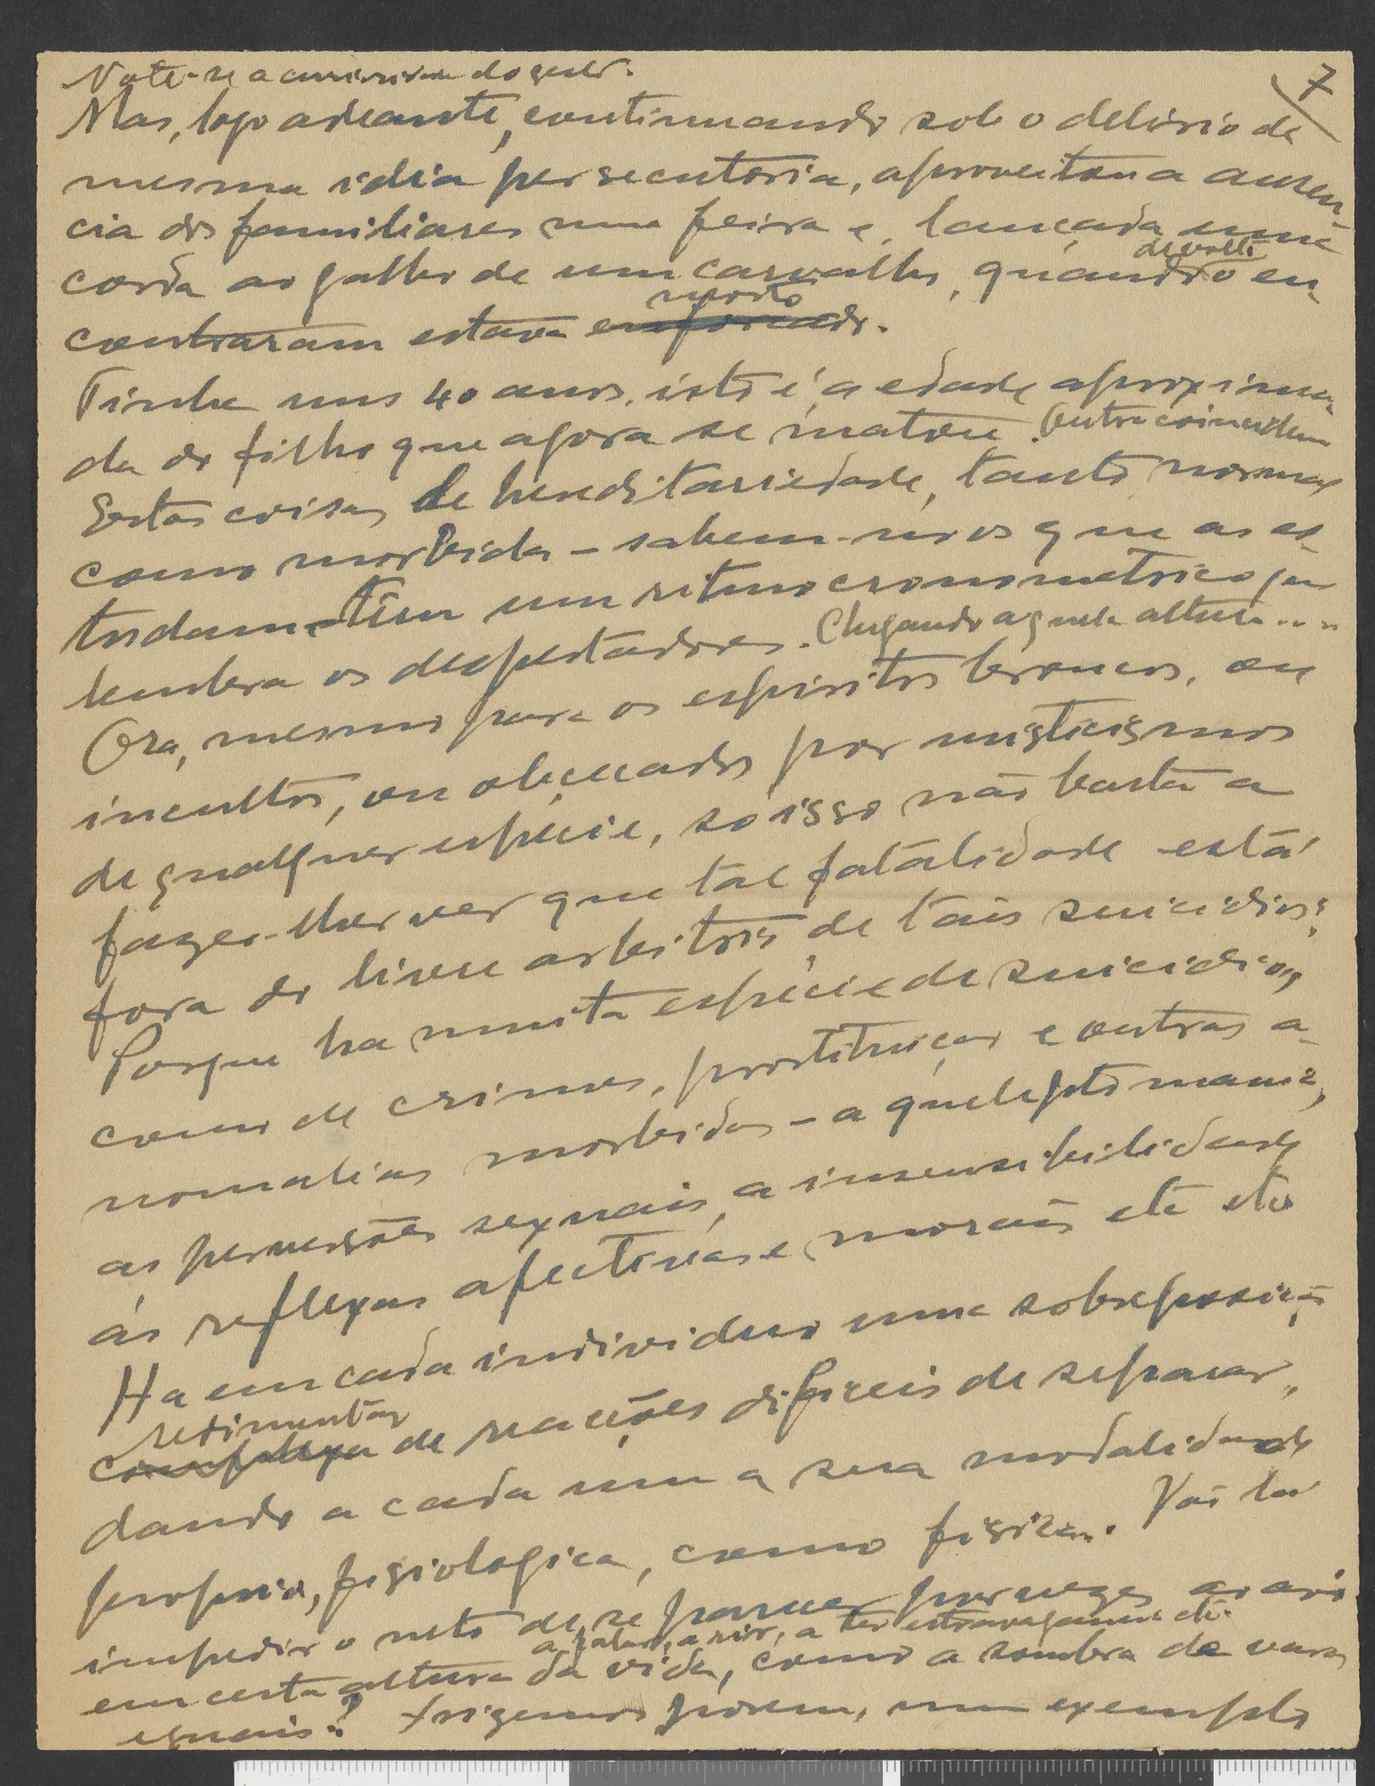 Note-se a do gesto.
7
Mas, logo adeante, continuando sob o delirio da
mesma idéia persecutoria, aproveitou a ausen-
cia dos familiares numa feira e, lançada uma
corda ao galho de um carvalho, quando
en-
contraram estava enforcado.
morto
Tinha uns 40 anos, isto é, a edade aproxima-
da do filho que agora se matou. Outra coincidencia
Estas coisas de hereditariedade, tanto normal
como morbida - sabem-no os que as es-
tudam - têm um ritmo cronometrico que
lembra os despertadores. Chegando aquela altura....
Ora, mesmo para os espiritos broncos, ou
incultos, ou obcecados por misticismos
de qualquer especie, só isso não basta a
fazer-lhes ver que tal fatalidade está
fora do livre arbitrio de tais suicidios;
Porque ha muita especie de suicidios,
como de crimes, prostituição e outras a-
nomalias morbidas - a quleptomania,
as perversões sexuais, a insensibilidade
ás reflexas afectivas e morais etc etc
Ha em cada individuo uma sobreposição
sedimentar
complexa de reacções dificeis de separar,
dando a cada um a sua modalidade
propria, fisiologica, como fisica. Vai lá
impedir o neto de se parecer por vezes ao avô
a falar, a rir, a ter extravagancias etc.
em certa altura da vida, como a sombra de varas
eguais? Frizemos porem, um exemplo